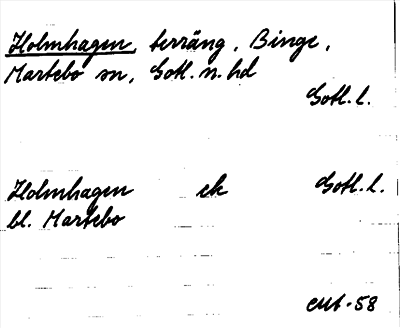 Holmhagen, terräng, Binge,
Martebo sn, Gotl. n. hd
Gotl. l.
Holmhagen ek Gotl. l.
bl. Martebo
emt. 58